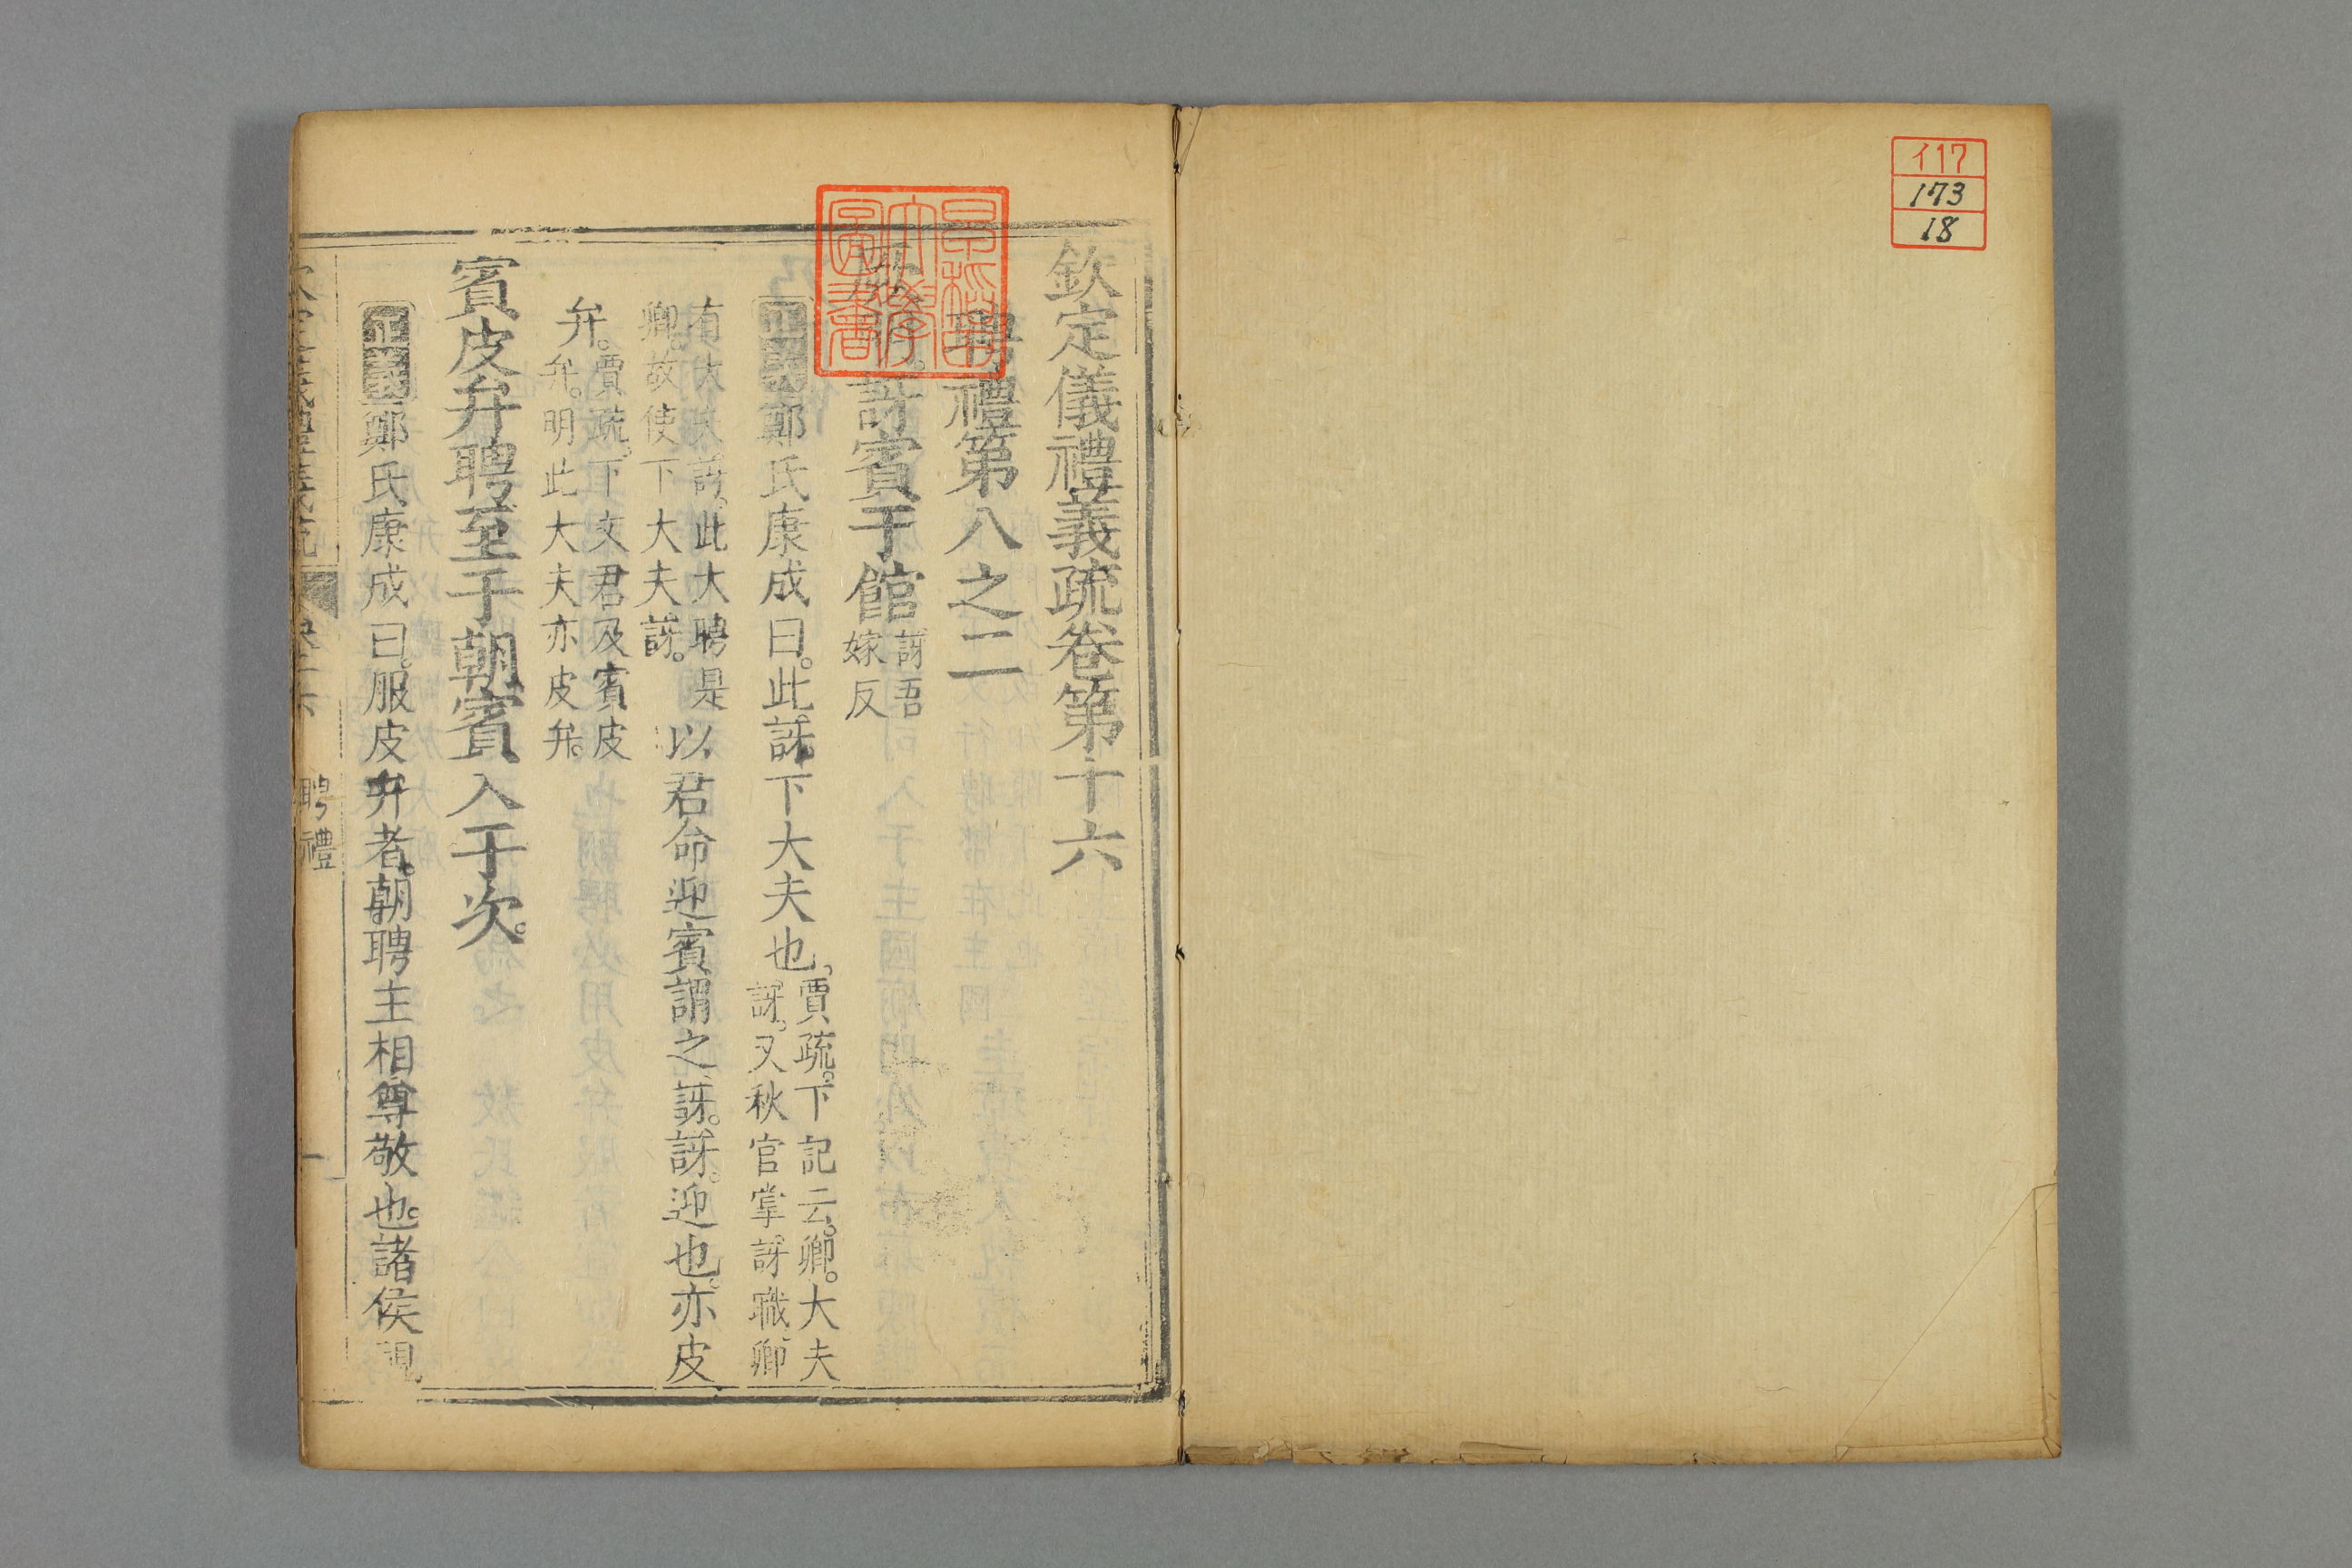 イ17
173
18
欽定儀禮義疏卷第十六
聘禮第八之二
厥明。訝賓于館訝吾嫁反
正義鄭氏康成曰。此訝下大夫也。賈疏。下記云。卿。大夫訝。又秋官掌訝職。卿
有大夫訝。此大聘是卿。故使下大夫訝。以君命迎賓謂之訝。訝。迎也。亦皮
弁。賈疏。下文君及賓皮弁。明此大夫亦皮弁。
賓皮弁聘至于朝賓入于次。
正義鄭氏康成曰。服皮弁者。朝聘主相尊敬也。諸侯視
聘禮
一
早稻田大學圖書